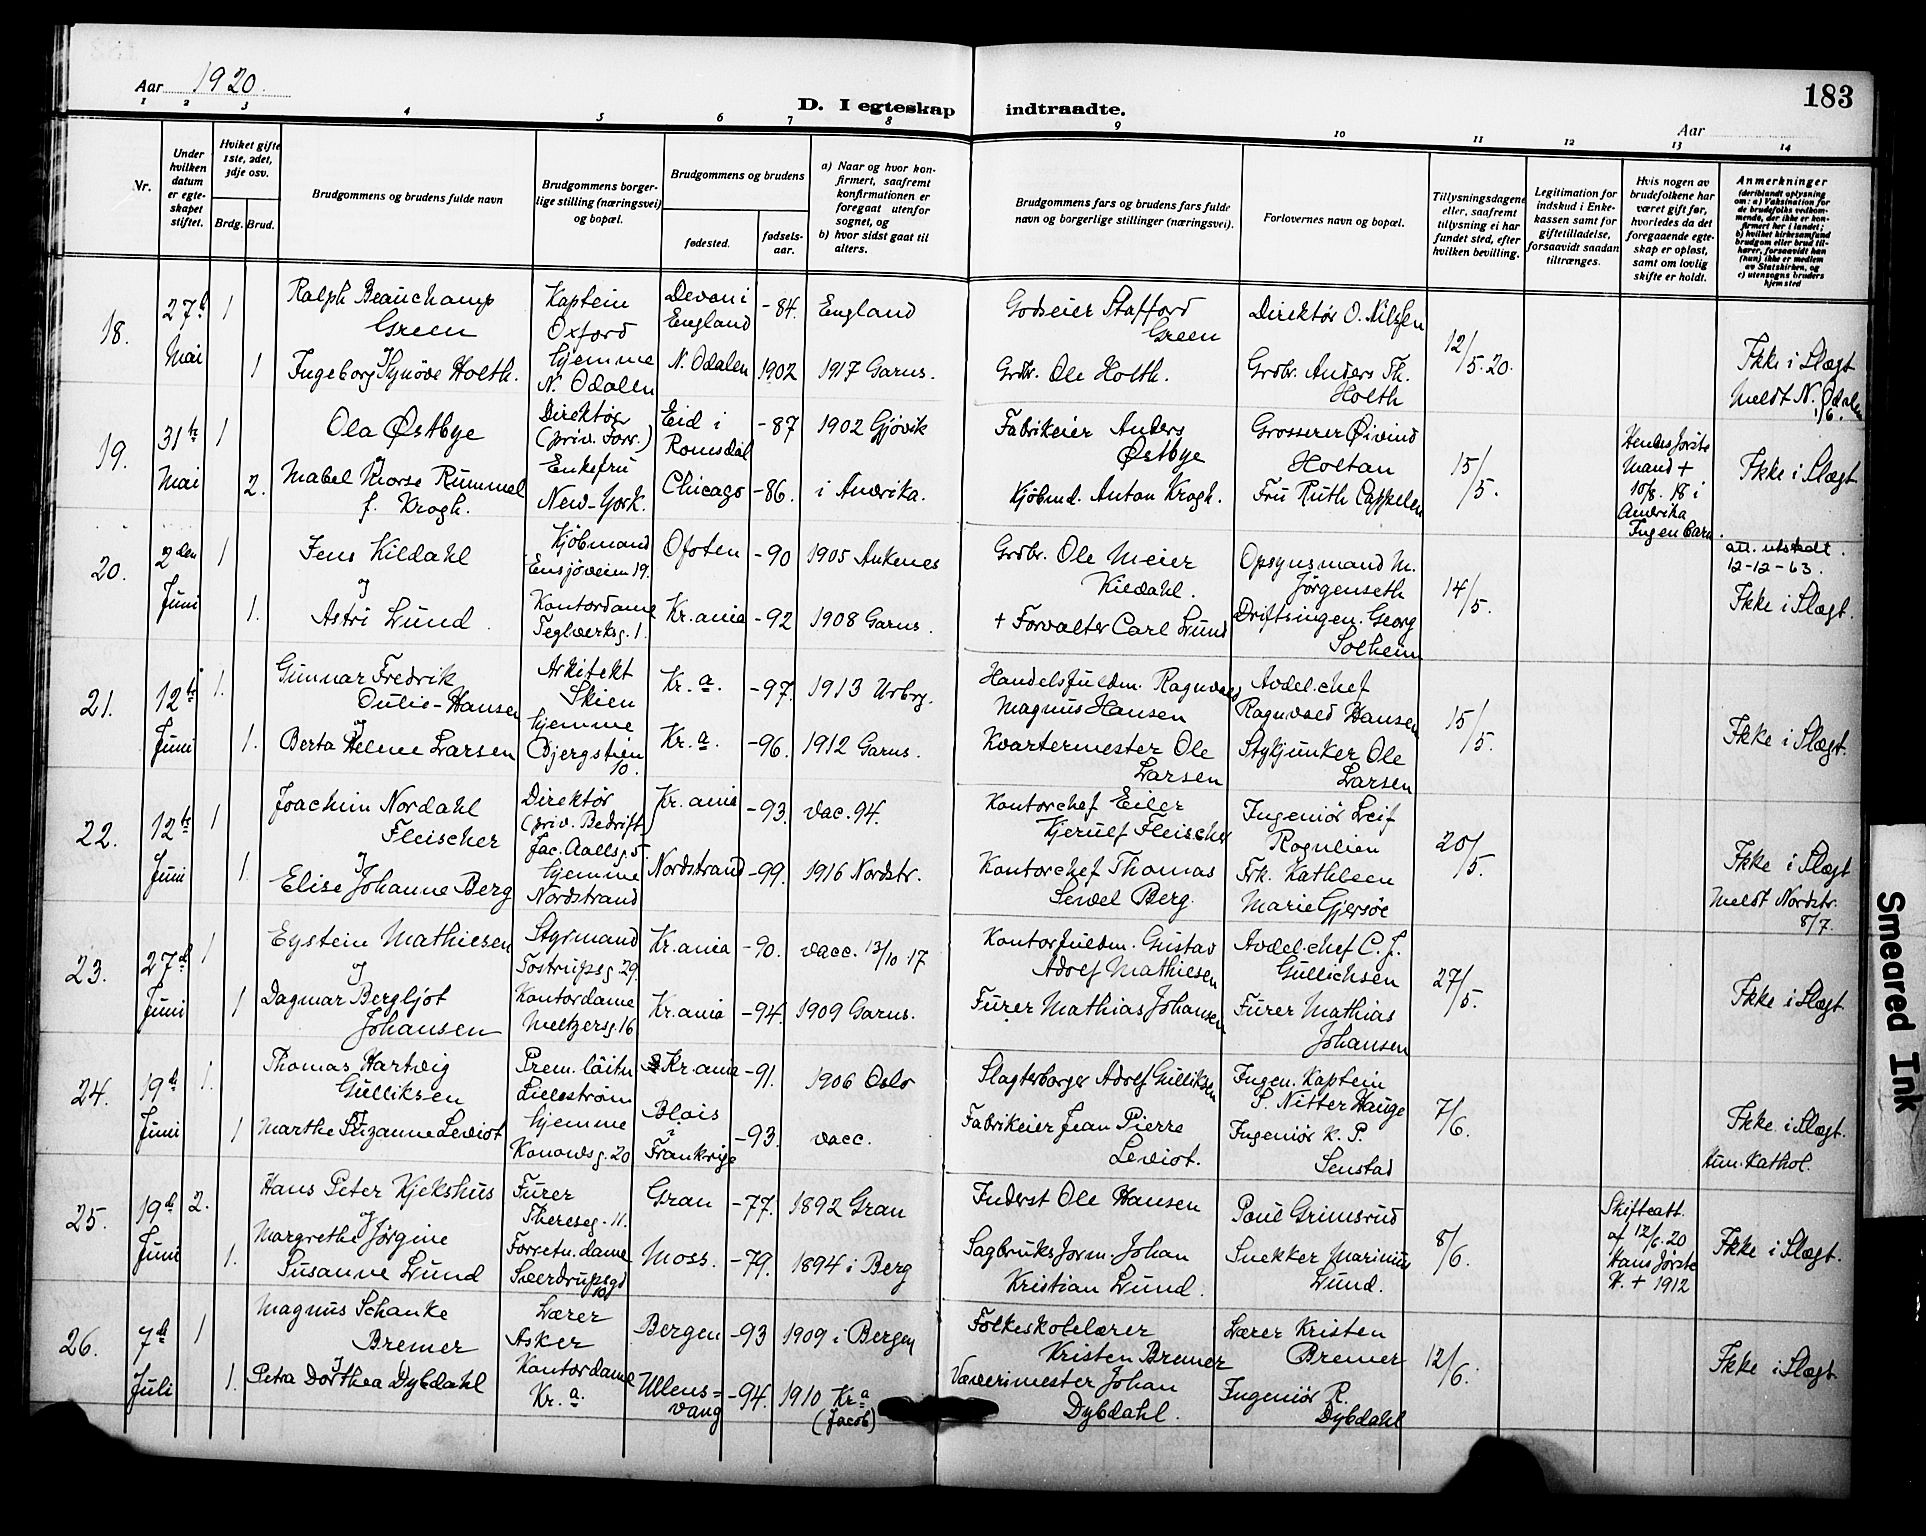 Aar 1920.
D. I egteskap indtraadte.
183
Aar
1 2 3 4 5 6 7 8 9 10 11 12 13 14
Nr.
Under hvilken datum er egteskapet stiftet.
Hvilket gifte 1ste, 2det, 3dje osv.
Brdg. Brud.
Brudgommens og brudens fulde navn
Brudgommens borgerlige stilling (næringsvei) og bopæl.
Brudgommens og brudens
fødested.
fødselsaar.
a) Naar og hvor konfirmert, saafremt konfirmationen er foregaat utenfor sognet, og
b) hvor sidst gaat til alters.
Brudgommens fars og brudens fars fulde navn og borgerlige stillinger (næringsvei).
Forlovernes navn og bopæl.
Tillysningsdagene eller, saafremt tillysning ei har fundet sted, efter hvilken bevilling.
Legitimation for indskud i Enkekassen samt for giftetilladelse, forsaavidt saadan tiltrænges.
Hvis nogen av brudefolkene har været gift før, hvorledes da det foregaaende egteskap er opløst, samt om lovlig skifte er holdt.
Anmerkninger
(deriblandt oplysning om: a) Vaksination for de brudefolks vedkommende, der ikke er konfirmert her i landet; b) hvilket kirkesamfund brudgom eller brud tilhører, forsaavidt han (hun) ikke er medlem av Statskirken, og c) utensogns bruders hjemsted
18. 27d Mai 1 Ralph Beauchamp Green Kaptein Oxford Devon i England -84. England Godseier Stafford Green Direktør O. Nilsen 12/5.20. Ikke i Slægt
1 Ingeborg Synøve Holth. hjemme N. Odalen N. Odalen 1902 1917 Garns. Grdbr. Ole Holth. Grdbr. Anders Th. Holth Meldt N. Odalen 1/6.
19. 31te Mai 1 Ola Østbye Direktør (priv. Forr.) Eid i Romsdal -87 1902 Gjøvik Fabrikeier Anders Østbye Grosserer Øivind Holtan 15/5. Hendes første Mand + 10/8. 18 i Amerika Ingen Barn Ikke i Slægt
2. Mabel Morse Rummel f. Krogh. Enkefru New-York. Chicago -86. i Amerika. Kjøbmd. Anton Krogh. Fru Ruth Cappelen
20. 2den Juni 1 Jens Kildahl Kjøbmand Ensjøveien 19. Ofoten -90 1905 Ankenes Grdbr. Ole Meier Kildahl. Opsynsmand M. Jørgenseth 14/5. att. utstedt. 12-12-63.
og
1. Astri Lund. Kontordame Teglverksg. 1. Kr.ania -92 1908 Garns. + Forvalter Carl Lund Driftsingen. Georg Solheim Ikke i Slægt.
21. 12te Juni 1. Gunnar Fredrik Oulie-Hansen Arkitekt Skien Kr.a. -97. 1913 Urbrg. Handelsfuldm. Ragnvald Magnus Hansen Avdel.chef Ragnvald Hansen 15/5. Ikke i Slægt.
og
1. Berta Helene Larsen hjemme Bjergstien 10. Kr.a. -96. 1912 Garns. Kvartermester Ole Larsen Stykjunker Ole Larsen
22. 12te Juni 1 Joachim Nordahl Fleischer Direktør (priv. Bedrift) Jac. Aallsg. 5. Kr.ania -93. vac. 94. Kontorchef Eiler Kjerulf Fleischer Ingeniør Leif Rognlien 20/5. Ikke i Slægt
og
1. Elise Johanne Berg hjemme Nordstrand Nordstrand -99. 1916 Nordstr. Kontorchef Thomas Sewel Berg. Frk. Kathleen Marie Gjersøe Meldt Nordstr. 8/7.
23. 27d Juni 1 Eystein Mathiesen Styrmand Tostrupsg. 29. Kr.ania -90. vacc. 13/10.17 Kontorfuldm. Gustav Adolf Mathiesen Avdel.chef C. J. Gullichsen 27/5. Ikke i Slægt
og
1 Dagmar Bergljot Johansen Kontordame Meltzersg. 16 Kr.ania -94. 1909 Garns. Furer Mathias Johansen Furer Mathias Johansen
24. 19d Juni 1. Thomas Hartvig Gulliksen Prem. løitn Lillestrøm Kr.ania -91. 1906 Oslo Slagterborger Adolf Gulliksen Ingen. Kaptein S. Nitter Hauge 7/6. Ikke i Slægt.
og
1 Marthe Suzanne Leviot hjemme Konowsg. 20 Blois i Frankrige -93. vacc. Fabrikeier Jean Pierre Leviot. Ingeniør K. P. Senstad Hun. Kathol.
25. 19d Juni 2. Hans Peter Kjekshus Furer Theresesg. 11. Gran -77. 1892 Gran Inderst Ole Hansen Paul Grimsrud 8/6. Skifteatt. af 12/6.20 Hans første H. + 1912 Ikke i Slægt.
og
1. Margrethe Jørgine Susanne Lund Forretn.dame Sverdrupsgd 10 Moss. -79. 1894 i Berg Sagbruksform. Johan Kristian Lund. Snekker Marinius Lund.
26. 7d Juli 1 Magnus Schanke Bremer Lærer Asker Bergen -93 1909 i Bergen Folkeskolelærer Kristen Bremer Lærer Kristen Bremer 12/6. Ikke i Slægt
og
1. Petra Dorthea Dybdahl Kontordame Kr.a. Ullensvang -94. 1910 Kr.a (Jacob) Væverimester Johan Dybdahl. Ingeniør R. Dybdahl
Smeared Ink